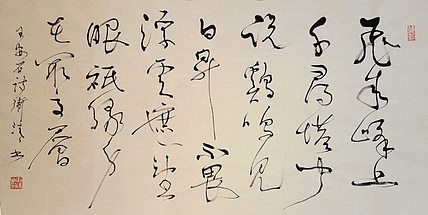 飛來峰上
千尋塔聞
說鷄鳴見
日昇不畏
浮雲遮望
眼祇緣身
在最高層
王安石詩 書